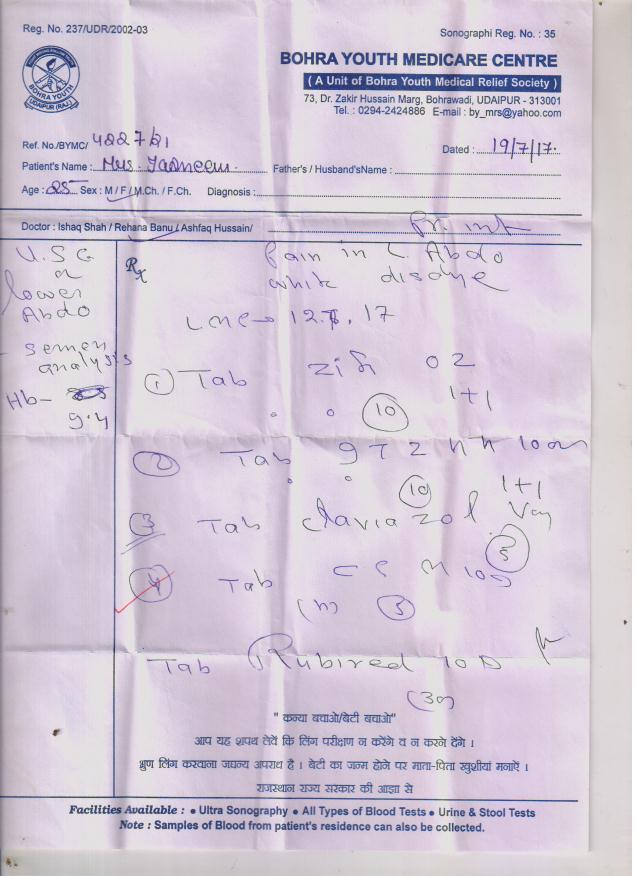 Reg. No. 237/UDR/2002-03
Sonographi Reg. No. : 35
BOHRA YOUTH
UDAIPUR (RAJ.)
BOHRA YOUTH MEDICARE CENTRE
( A Unit of Bohra Youth Medical Relief Society )
73, Dr. Zakir Hussain Marg, Bohrawadi, UDAIPUR - 313001
Tel. : 0294-2424886 E-mail : by_mrs@yahoo.com
Ref. No./BYMC/ 4227/21
Dated : 19/7/17
Patient's Name : Mrs. Tasneem Father's / Husband'sName :
Age : 25 Sex : M / F / M.Ch. / F.Ch. Diagnosis :
Doctor : Ishaq Shah / Rehana Banu / Ashfaq Hussain/
U.S.G
lower
Abdo
- Semen
analysis
Hb-
9.4
Rx
Pain in L. Abdo
white
12.7.17
1 Tab 02
10 1+1
2 Tab
10 1+1
3 Tab claviazol
5
4 Tab
5
Tab Rubired 10D
" कन्या बचाओ/बेटी बचाओ"
आप यह शपथ लेवें कि लिंग परीक्षण न करेंगे व न करने देंगे ।
भ्रुण लिंग करवाना जघन्य अपराध है । बेटी का जन्म होने पर माता-पिता खुशीयां मनाऐं ।
राजस्थान राज्य सरकार की आज्ञा से
Facilities Available : • Ultra Sonography • All Types of Blood Tests • Urine & Stool Tests
Note : Samples of Blood from patient's residence can also be collected.